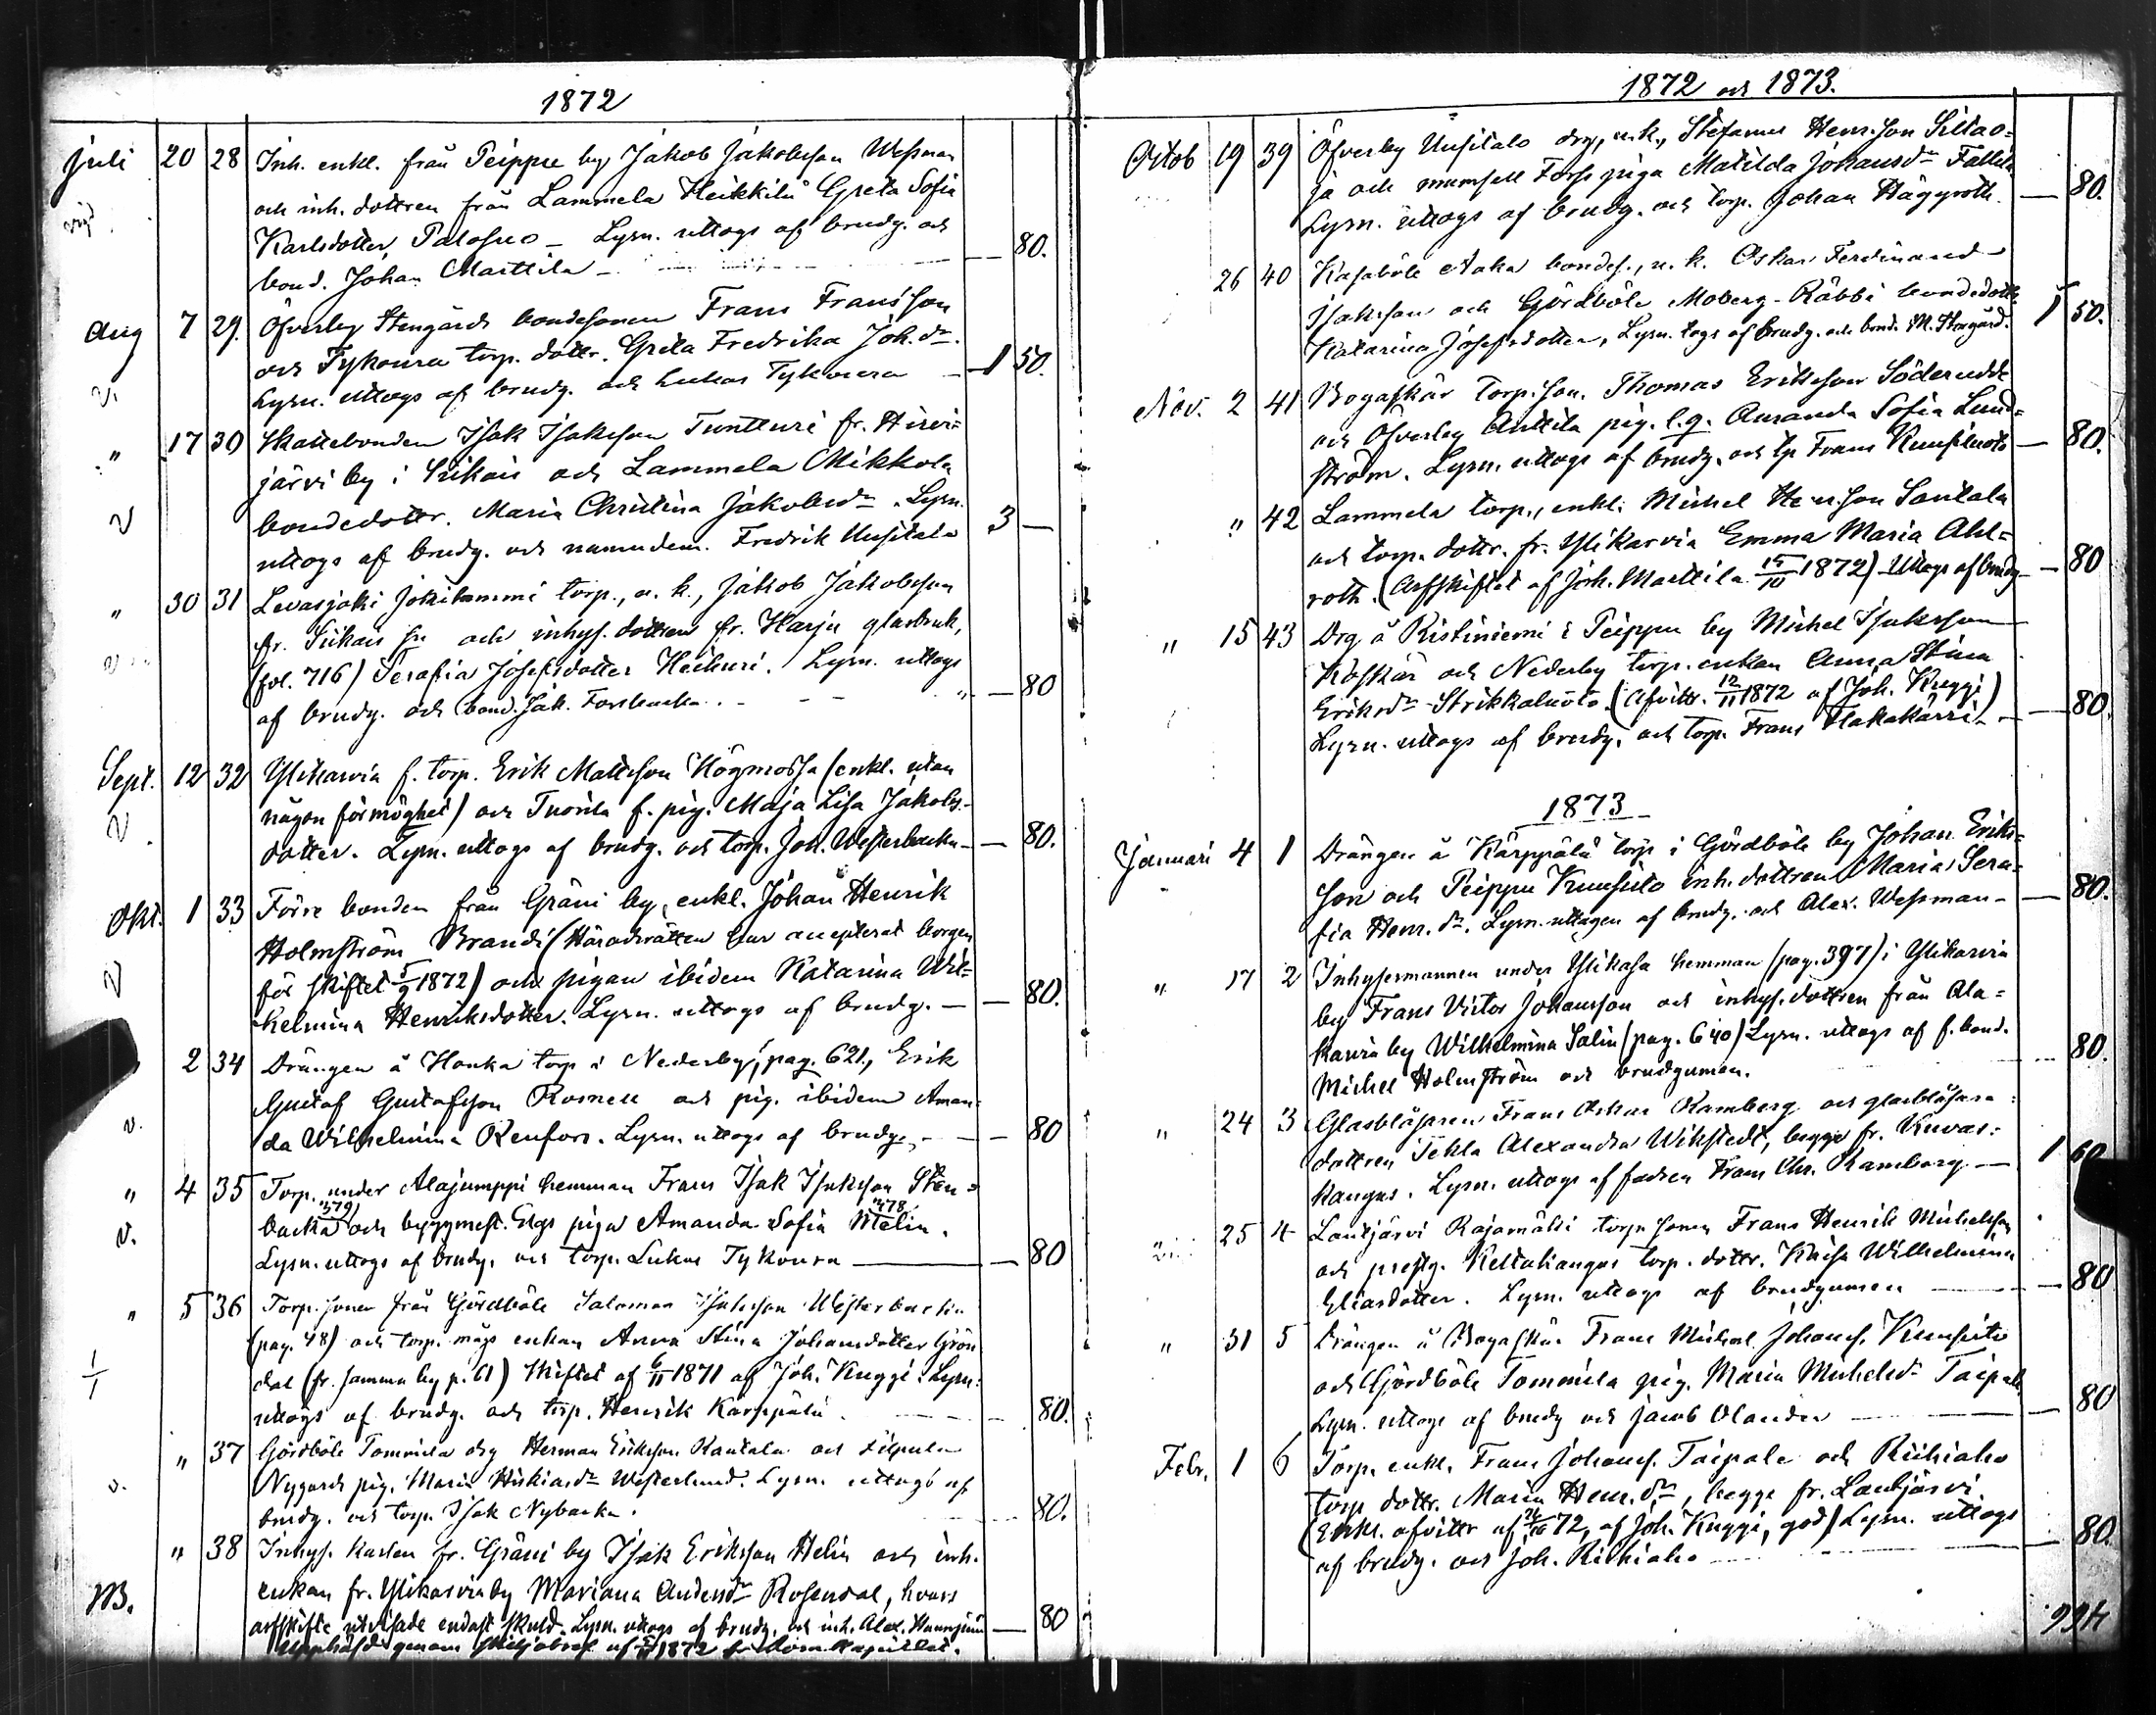 1872
Juli 20 28 Inh. enkl. från Peippu by Jakob Jakobsson Wessman
och inh. dottren från Lammela Heikkilä Greta Sofia
Karlsdotter Palosuo – Lysn. uttogs af brudg. och
bond. Johan Marttila — 80.
Aug 7 29. Öfverby Stengårds bondesonen Frans Franssson
och Tykoura torp. dottr. Greta Fredrika Joh.dr.
Lysn. uttogs af brudg. och Lukas Tykoura — 1 50.
" 17 30 Skattebonden Isak Isaksson Tuntturi fr. Hirvi=
järvi by i Siikais och Lammela Mikkola
bondedottr. Maria Christina Jakobsdr. Lysn.
uttogs af brudg. och nämndem. Fredrik Uusitalo 3 —
" 30 31 Levasjoki Jokilammi torp., u. k., Jakob Jakobsson
fr. Siikais sn och inhys. dottren fr. Harju glasbruk,
(fol. 716) Serafia Josefsdotter Heikuri. Lysn. uttogs
af brudg. och bond. Jak. Forsbacka. — 80
Sept. 12 32 Ylikarvia f. torp. Erik Mattsson Högmossa (enkl. utan
någon förmöghet) och Tuorila f. pig. Maja Lisa Jakobs-
dotter. Lysn. uttogs af brudg. och torp. Joh. Westerbacka — 80.
Okt. 1 33 Förre bonden från Gräni by, enkl. Johan Henrik
Holmström Brandi (Häradsrätten har accepterat borgen
för skiftet 5/9 1872) och pigan ibidem Katarina Wil=
helmina Henriksdotter. Lysn. uttogs af brudg. — 80.
2 34 Drängen å Honka torp i Nederby, pag. 621, Erik
Gustaf Gustafsson Rosnell och pig. ibidem Aman-
da Wilhelmina Renfors. Lysn. uttogs af brudg. — 80
" 4 35 Torp. under Alajumppi hemman Frans Isak Isaksson Sten=
backa och byggmest. Elgs piga Amanda Sofia Melin.
Lysn. uttogs af brudg. och torp. Lukas Tykoura — 80
" 5 36 Torp. sonen från Gördböle Salomon Isaksson Westerbacka
(pag. 48) och torp. mågs enkan Anna Stina Johansdotter Grön
dal (fr. samma by p. 61) Skiftet af 6/11 1871 af Joh. Kuggi. Lysn.
uttogs af brudg. och torp. Henrik Kärppälä. — 80.
" 37 Gördböle Tommila drg Herman Eriksson Rantala och
Nygårds pig. Maria Westerlund. Lysn. uttogs af
brudg. och torp. Isak Nybacka. 80.
" 38 Inhys. karlen fr. Gräni by Isak Eriksson Helin och inh.
enkan fr. Ylikarvia by Mariana Andersdr Rosendal, hvars
arfskifte utvisade endast skuld. Lysn. uttogs af brudg. och inh. Alex. — 80
NB. Upphäfd genom skiljobref af 1872 fr Dom Kapitlet.
1872 och 1873.
Octob 19 39 Öfverby Uusitalo drg, u.k., Stefanus Henr.son Siltao=
ja och mamsell Forss piga Matilda Johansdr Fallila
Lysn. uttogs af brudg. och torp. Johan Häggroth. — 80.
26 40 Kasaböle Aaka bondes., u. k. Oskar Ferdinand
Isaksson och Gördböle Moberg-Räbbi bondedottr
Katarina Josefsdotter, Lysn. togs af brudg. och bond. M. Storgård. 1 50.
Nov. 2 41 Bogaskär torp. son. Thomas Eriksson Söderudde
och Öfverby Anttila pig. l.q. Amanda Sofia Lund=
ström. Lysn. uttogs af brudg. och tp Frans Kuusiluoto — 80.
" 42 Lammela torp., enkl. Michel Henr.son Santala
och torp. dottr. fr. Ylikarvia Emma Maria Ahl=
roth. (Arfskiftet af Joh. Marttila 15/10 1872) Uttogs af brudg — 80
" 15 43 Drg å Ristiniemi i Peippu by Michel Isaksson
Kofskär och Nederby torp. enkan Anna Stina
Eriksdr Strikkaluoto. (Afvittr. 12/11 1872 af Joh. Kuggi)
Lysn. uttogs af brudg. och torp. Frans Hakakärri — 80.
1873
Januari 4 1 Drängen å Kärppälä torp i Gördböle by Johan Eriks=
son och Peippu Kuusisto inh. dottren Maria Sera=
fia Henr. dr. Lysn. uttagen af brudg. och Alex. Wessman — 80.
" 17 2 Inhysesmannen under Ylikasa hemman (pag. 397) i Ylikarvia
by Frans Victor Johansson och inhys. dottren från Ala=
karvia by Wilhelmina Salin (pag. 640) Lysn. uttogs af f. bond.
Michel Holmström och brudgumen. 80.
" 24 3 Glasblåsaren Frans Oskar Ramberg och glasblåsare=
dottren Tekla Alexandra Wikstedt, begge fr. Kuvas=
kangas. Lysn. uttogs af fadren Frans Chr. Ramberg — 1 60
25 4 Lankjärvi Rajamäki torp. sonen Frans Henrik Michelsson
och prestg. Keltakangas torp. dottr. Kaisa Wilhelmina
Eliasdotter. Lysn. uttogs af brudgumen — 80
" 31 5 Drängen å Bogaskär Frans Michael Johanss. Kuusisto
och Gördböle Tommila pig. Maria Michelsdr Taipale
Lysn. uttogs af brudg och Jacob Olander — 80
Febr. 1 6 Torp. enkl. Frans Johanss. Taipale och Riihiaho
torp. dottr. Maria Henr. dr, begge fr. Lankjärvi.
(Enkl. afvittr af 72, af Joh. Kuggi, god) Lysn. uttogs
af brudg. och Joh. Riihiaho — 80.